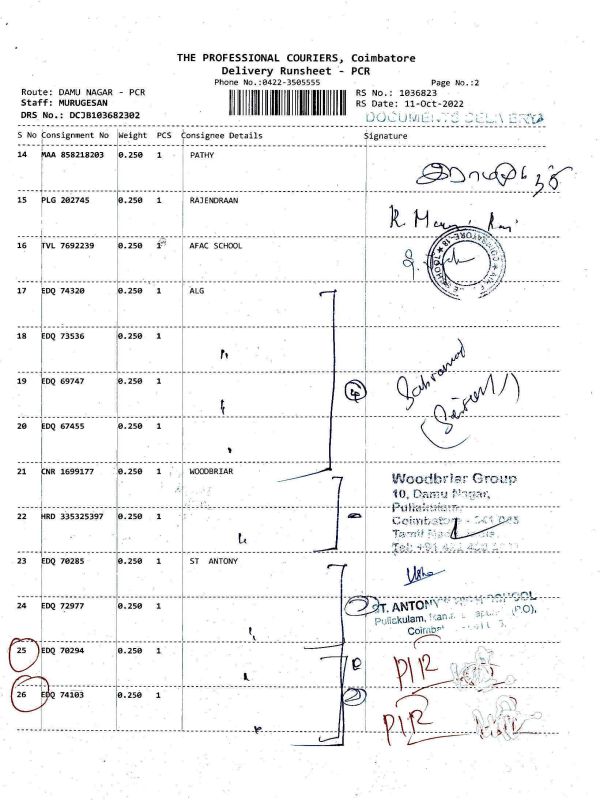 THE PROFESSIONAL COURIERS, Coimbatore
Delivery Runsheet - PCR
Phone No.:0422-3505555
Page No.:2
Route: DAMU NAGAR - PCR
RS No.: 1036823
Staff: MURUGESAN
RS Date: 11-Oct-2022
DRS No.: DCJB103682302
DOCUMENTS DELIVERY
S No Consignment No Weight PCS Consignee Details Signature
14 MAA 858218203 0.250 1 PATHY
15 PLG 202745 0.250 1 RAJENDRAAN
16 TVL 7692239 0.250 1 AFAC SCHOOL
17 EDQ 74320 0.250 1 ALG
18 EDQ 73536 0.250 1
19 EDQ 69747 0.250 1
20 EDQ 67455 0.250 1
21 CNR 1699177 0.250 1 WOODBRIAR
Woodbriar Group
10, Damu Nagar,
Puliakulam,
22 HRD 335325397 0.250 1
Coimbatore - 641 045
Tamil Nadu
23 EDQ 70285 0.250 1 ST ANTONY
Usha
24 EDQ 72977 0.250 1
ST. ANTONY SCHOOL
Puliakulam,
25 EDQ 70294 0.250 1
26 EDQ 74103 0.250 1